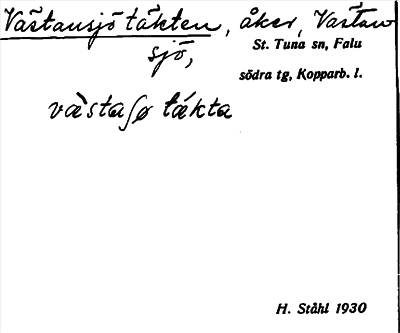 Västansjö täkten, åker, Västan
sjö,
St. Tuna sn, Falu
södra tg, Kopparb. l.
væ̀staʃø tækta
H. Ståhl 1930